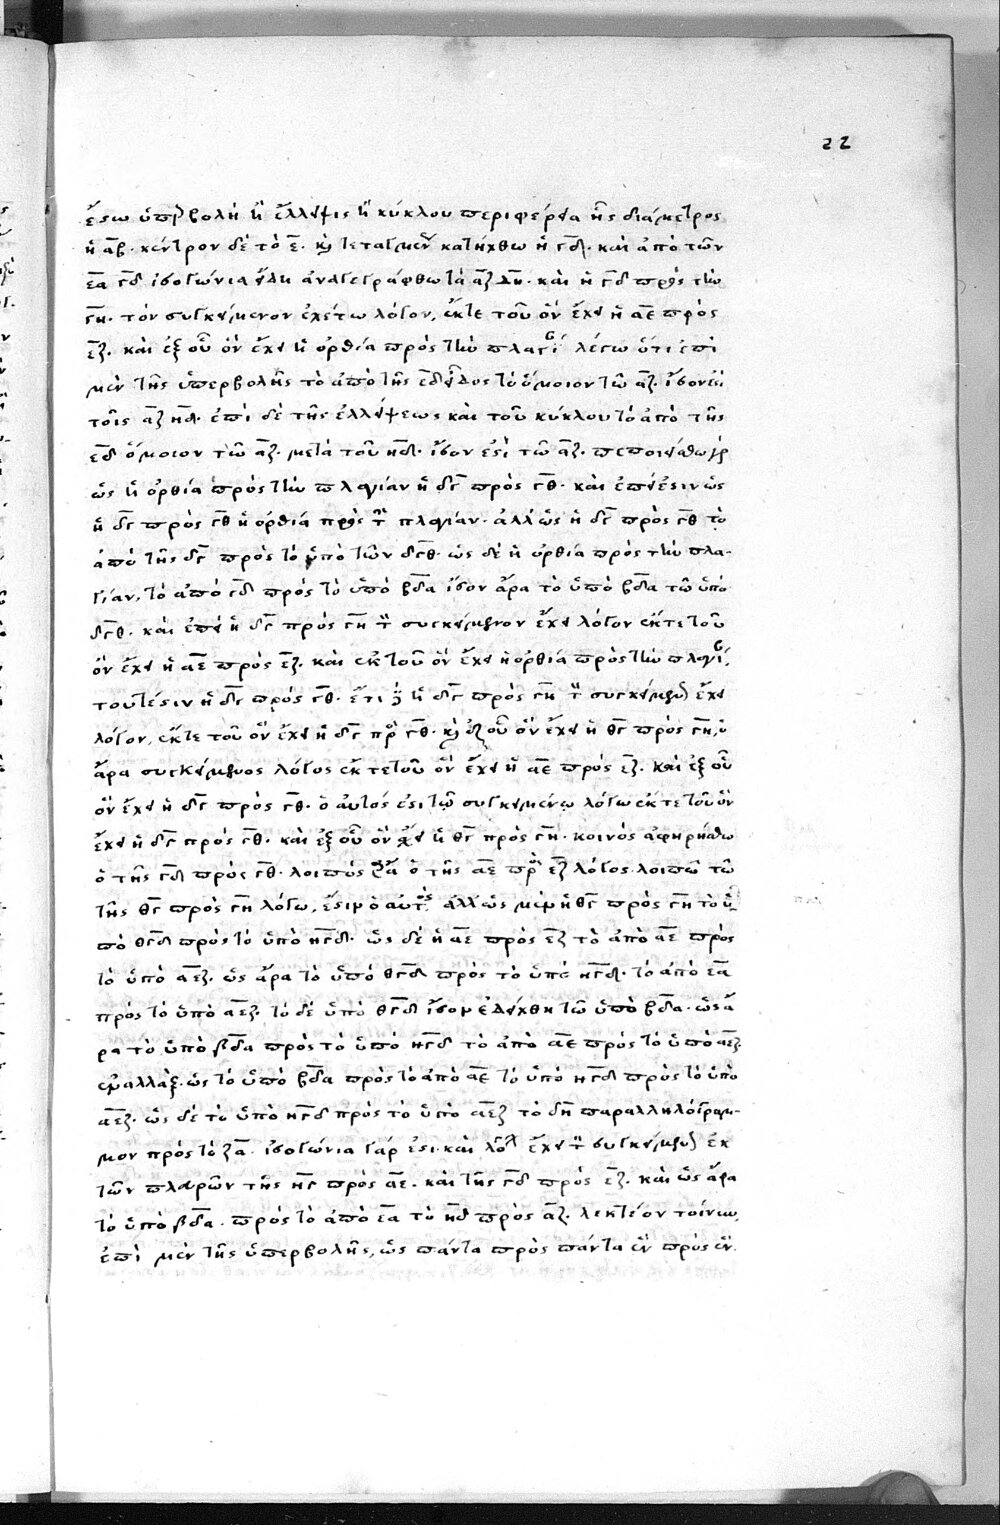 22
ἔστω ὑπερβολὴ ἢ ἔλλειψις ἢ κύκλου περιφέρεια ἧς διάμετρος
ἡ α̅β̅· κέντρον δὲ τὸ ε̅· καὶ τεταγμένως κατήχθω ἡ γ̅δ̅· καὶ ἀπὸ τῶν
ε̅α̅ γ̅δ̅ ἰσογώνια εἴδη ἀναγεγράφθω τὰ α̅ζ̅ δ̅η̅· καὶ ἡ γ̅δ̅ πρὸς τὴν
γ̅η̅· τὸν συγκείμενον ἐχέτω λόγον, ἔκ τε τοῦ ὃν ἔχει ἡ α̅ε̅ πρὸς
ε̅ζ̅· καὶ ἐξ οὗ ὃν ἔχει ἡ ὀρθία πρὸς τὴν πλαγίαν λέγω ὅτι ἐπὶ
μὲν τῆς ὑπερβολῆς τὸ ἀπὸ τῆς ε̅δ̅ εἶδος τὸ ὅμοιον τῶ α̅ζ̅· ἴσον ἐστὶ
τοῖς α̅ζ̅ η̅δ̅· ἐπὶ δὲ τῆς ἐλλείψεως καὶ τοῦ κύκλου τὸ ἀπὸ τῆς
ε̅δ̅ ὅμοιον τῶ α̅ζ̅· μετὰ τοῦ η̅δ̅· ἴσον ἐστὶ τῶ α̅ζ̅· πεποιείσθω γὰρ
ὡς ἡ ὀρθία πρὸς τὴν πλαγίαν ἡ δ̅γ̅ πρὸς γ̅θ̅· καὶ ἐπεί ἐστιν ὡς
ἡ δ̅γ̅ πρὸς γ̅θ̅ ἡ ὀρθία πρὸς τὴν πλαγίαν· ἀλλ ὡς ἡ δ̅γ̅ πρὸς γ̅θ̅ τὸ
ἀπὸ τῆς δ̅γ̅ πρὸς τὸ ὑπὸ τῶν δ̅γ̅θ̅· ὡς δὲ ἡ ὀρθία πρὸς τὴν πλα-
γίαν, τὸ ἀπὸ γ̅δ̅ πρὸς τὸ ὑπὸ β̅δ̅α̅ ἴσον ἄρα τὸ ὑπὸ β̅δ̅α̅ τῶ ὑπὸ
δ̅γ̅θ̅· καὶ ἐπεὶ ἡ δ̅γ̅ πρὸς γ̅η̅ τὸν συγκείμενον ἔχει λόγον ἔκ τε τοῦ
ὃν ἔχει ἡ α̅ε̅ πρὸς ε̅ζ̅· καὶ ἐκ τοῦ ὃν ἔχει ἡ ὀρθία πρὸς τὴν πλαγίαν,
τουτέστιν ἡ δ̅γ̅ πρὸς γ̅θ̅· ἔτι δὲ ἡ δ̅γ̅ πρὸς γ̅η̅ τὸν συγκείμενον ἔχει
λόγον, ἔκ τε τοῦ ὃν ἔχει ἡ δ̅γ̅ πρὸς γ̅θ̅· καὶ ἐξ οὗ ὃν ἔχει ἡ θ̅γ̅ πρὸς γ̅η̅, ὁ
ἄρα συγκείμενος λόγος ἔκ τε τοῦ ὃν ἔχει ἡ α̅ε̅ πρὸς ε̅ζ̅· καὶ ἐξ οὗ
ὃν ἔχει ἡ δ̅γ̅ πρὸς γ̅θ̅· ὁ αὐτός ἐστι τῶ συγκειμένω λόγω ἔκ τε τοῦ ὃν
ἔχει ἡ δ̅γ̅ πρὸς γ̅θ̅· καὶ ἐξ οὗ ὃν ἔχει ἡ θ̅γ̅ πρὸς γ̅η̅· κοινὸς ἀφηρήσθω
ὁ τῆς γ̅δ̅ πρὸς γ̅θ̅· λοιπὸς ἄρα ὁ τῆς α̅ε̅ πρὸς ε̅ζ̅ λόγος· λοιπῶ τῶ
τῆς θ̅γ̅ πρὸς γ̅η̅ λόγω, ἔστιν ὁ αὐτός· ἀλλ ὡς μὲν ἡ θ̅γ̅ πρὸς γ̅η̅ τὸ ὑ-
πὸ θ̅γ̅δ̅ πρὸς τὸ ὑπὸ η̅γ̅δ̅· ὡς δὲ ἡ α̅ε̅ πρὸς ε̅ζ̅ τὸ ἀπὸ α̅ε̅ πρὸς
τὸ ὑπὸ α̅ε̅ζ̅· ὡς ἄρα τὸ ὑπὸ θ̅γ̅δ̅ πρὸς τὸ ὑπὸ η̅γ̅δ̅· τὸ ἀπὸ ε̅α̅
πρὸς τὸ ὑπὸ α̅ε̅ζ̅· τὸ δὲ ὑπὸ θ̅γ̅δ̅ ἴσον ἐδείχθη τῶ ὑπὸ β̅δ̅α̅· ὡς ἄ
ρα τὸ ὑπὸ β̅δ̅α̅ πρὸς τὸ ὑπὸ η̅γ̅δ̅ τὸ ἀπὸ α̅ε̅ πρὸς τὸ ὑπὸ α̅ε̅ζ̅·
ἐναλλὰξ· ὡς τὸ ὑπὸ β̅δ̅α̅ πρὸς τὸ ἀπὸ α̅ε̅ τὸ ὑπὸ η̅γ̅δ̅ πρὸς τὸ ὑπὸ
α̅ε̅ζ̅· ὡς δὲ τὸ ὑπὸ η̅γ̅δ̅ πρὸς τὸ ὑπὸ α̅ε̅ζ̅ τὸ δ̅η̅ παραλληλόγραμ-
μον πρὸς τὸ ζ̅α̅· ἰσογώνια γάρ ἐστι· καὶ λόγον ἔχει τὸν συγκείμενον ἐκ
τῶν πλευρῶν τῆς η̅γ̅ πρὸς α̅ε̅· καὶ τῆς γ̅δ̅ πρὸς ε̅ζ̅· καὶ ὡς ἄρα
τὸ ὑπὸ β̅δ̅α̅· πρὸς τὸ ἀπὸ ε̅α̅ τὸ η̅δ̅ πρὸς α̅ζ̅· λεκτέον τοίνυν,
ἐπὶ μὲν τῆς ὑπερβολῆς, ὡς πάντα πρὸς πάντα ἓν πρὸς ἕν·